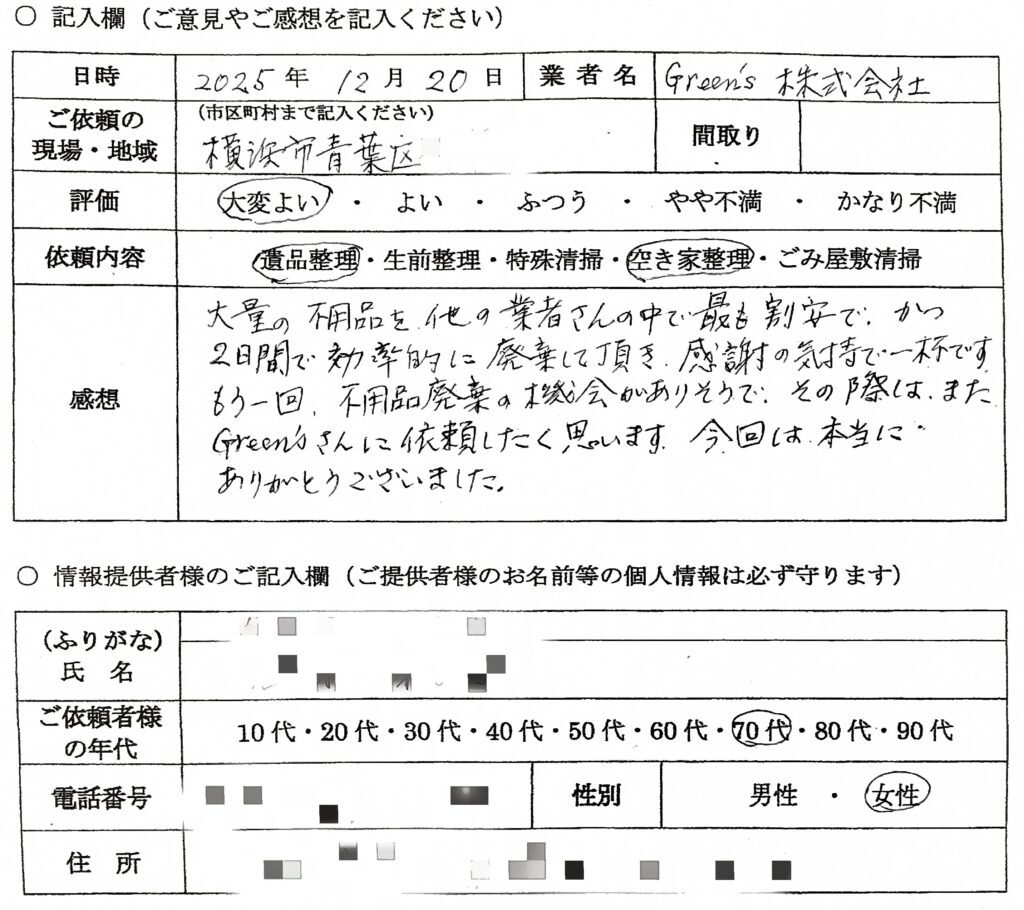 ○ 記入欄（ご意見やご感想を記入ください）
日時 2025年 12月 20日 業者名 Green's 株式会社
ご依頼の現場・地域 (市区町村まで記入ください) 間取り
横浜市青葉区
評価 大変よい ・ よい ・ ふつう ・ やや不満 ・ かなり不満
依頼内容 遺品整理・生前整理・特殊清掃・空き家整理・ごみ屋敷清掃
感想
大量の不用品を他の業者さんの中で最も割安で、かつ
2日間で効率的に廃棄して頂き、感謝の気持で一杯です
もう一回、不用品廃棄の機会がありそうで、その際は、また
Green'sさんに依頼したく思います。今回は本当に
ありがとうございました。
○ 情報提供者様のご記入欄（ご提供者様のお名前等の個人情報は必ず守ります）
(ふりがな)
氏 名
ご依頼者様の年代 10代・20代・30代・40代・50代・60代・70代・80代・90代
電話番号 性別 男性 ・ 女性
住 所